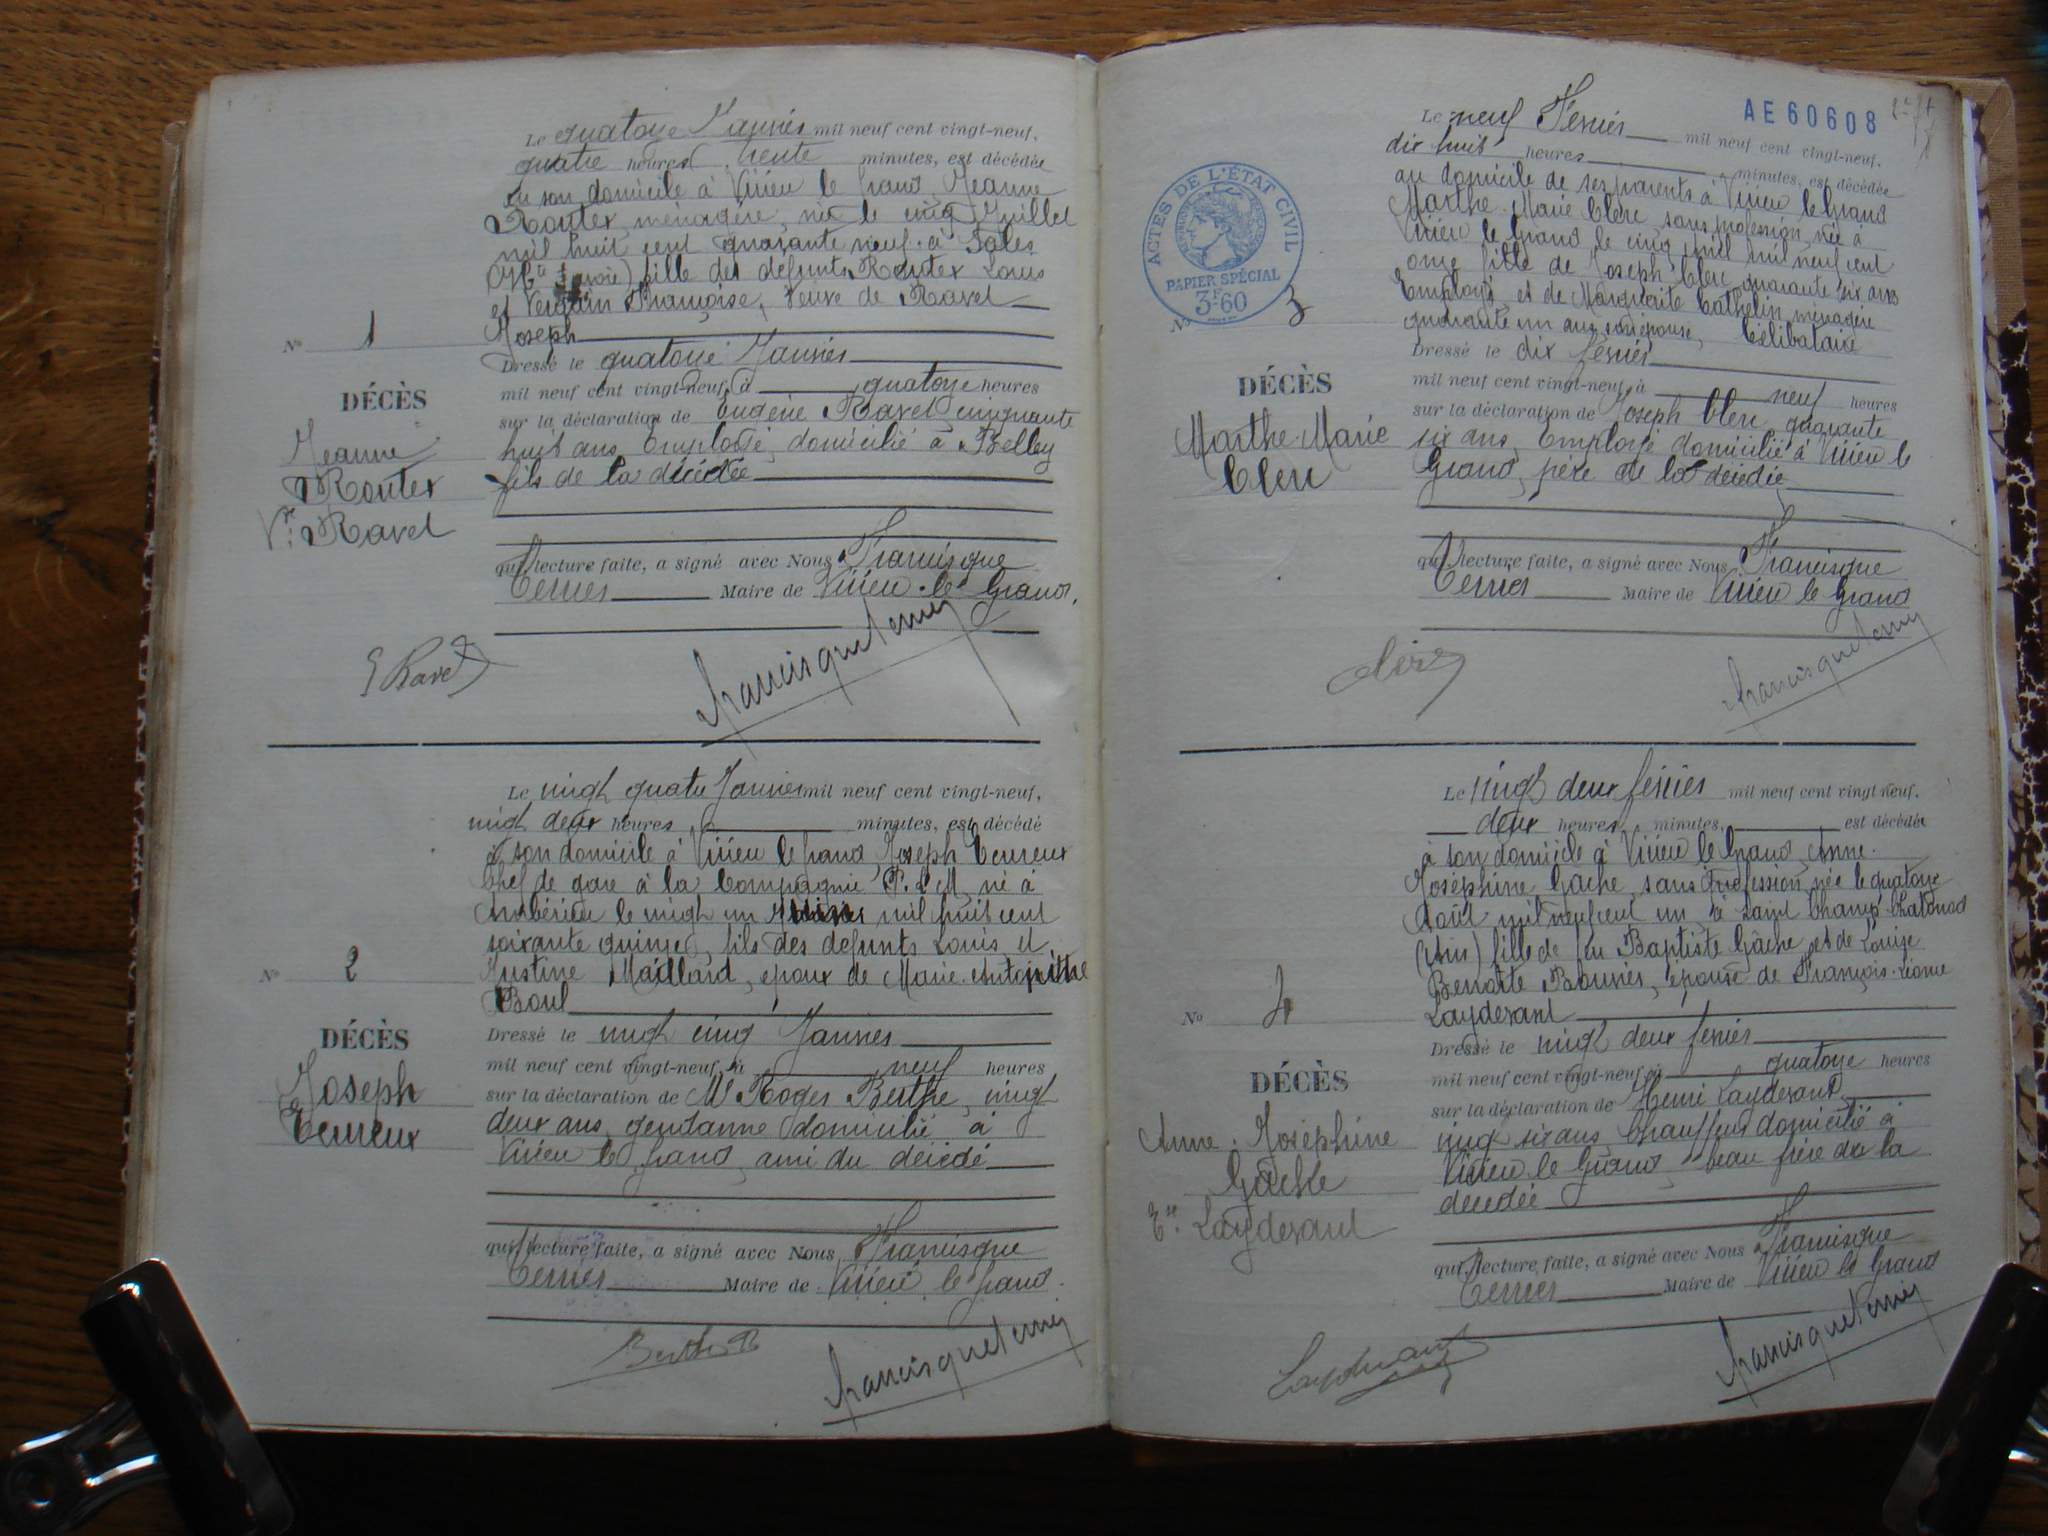 Le quatorze Janvier mil neuf cent vingt-neuf,
quatre heures trente minutes, est décédée
en son domicile à Virieu le Grand Jeanne
Router ménagère, née le cinq Juillet
mil huit cent quarante neuf à Sales
(Hte Savoie) fille des défunts Router Louis
et Vergain Françoise, Veuve de Ravel
Joseph
No 1
DÉCÈS
Jeanne
Router
Ve Ravel
Dressé le quatorze Janvier
mil neuf cent vingt-neuf, à quatorze heures
sur la déclaration de Eugène Ravel cinquante
huit ans, Employé, domicilié à Belley
fils de la décédée
qui, lecture faite, a signé avec Nous Francisque
Terrier Maire de Virieu-le-Grand.
E Ravel
Francisque Terrier
Le vingt quatre Janvier mil neuf cent vingt-neuf,
vingt deux heures minutes, est décédé
à son domicile à Virieu le Grand Joseph Tenreux
Chef de gare à la Compagnie P. L M, né à
Ambérieu le vingt un mil huit cent
soixante quinze, fils des défunts Louis et
Justine Maillard, époux de Marie-Antoinette
Boul
No 2
DÉCÈS
Joseph
Tenreux
Dressé le vingt cinq Janvier
mil neuf cent vingt-neuf, à neuf heures
sur la déclaration de Mr Roger Berthe, vingt
deux ans, gendarme domicilié à
Virieu le Grand, ami du décédé
qui, lecture faite, a signé avec Nous Francisque
Terrier Maire de Virieu le Grand.
Francisque Terrier
AE 60608
Le neuf Février mil neuf cent vingt-neuf,
dix huit heures minutes, est décédée
au domicile de ses parents à Virieu le Grand
Marthe-Marie Clerc sans profession, née à
Virieu le Grand le cinq mil neuf cent
onze fille de Joseph Clerc quarante six ans
Employé, et de Marguerite Cathelin ménagère
quarante un ans son épouse, Célibataire
ACTES DE L'ÉTAT CIVIL
PAPIER SPÉCIAL
3F60
No 3
DÉCÈS
Marthe-Marie
Clerc
Dressé le dix février
mil neuf cent vingt-neuf à neuf heures
sur la déclaration de Joseph Clerc quarante
six ans, Employé domicilié à Virieu le
Grand, père de la décédée
qui, lecture faite, a signé avec Nous Francisque
Terrier Maire de Virieu le Grand
Clerc
Francisque Terrier
Le vingt deux février mil neuf cent vingt-neuf,
deux heures minutes, est décédée
à son domicile à Virieu le Grand Anne
Joséphine Gâche, sans profession, née le quatorze
Août mil neuf cent un à Saint Champ-Chatonod
(Ain) fille de feu Baptiste Gâche et de Louise
Benoite Bouvier, épouse de François-Léonce
Laydevant
No 4
DÉCÈS
Anne-Joséphine
Gâche
Ese Laydevant
Dressé le vingt deux février
mil neuf cent vingt-neuf à quatorze heures
sur la déclaration de Henri Laydevant
vingt six ans Chauffeur domicilié à
Virieu le Grand, beau frère de la
décédée
qui, lecture faite, a signé avec Nous Francisque
Terrier Maire de Virieu le Grand
Laydevant
Francisque Terrier